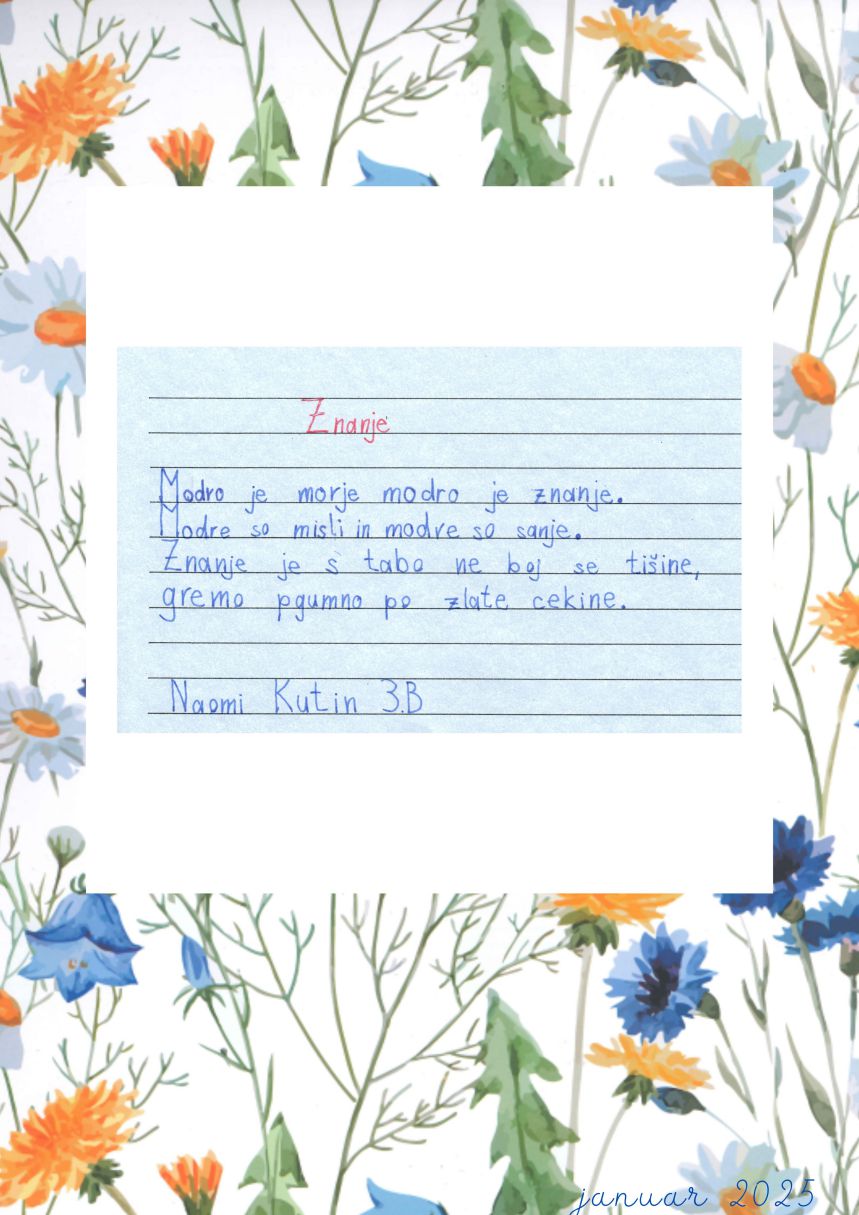 Znanje
Modro je morje modro je znanje.
Modre so misli in modre so sanje.
Znanje je s tabo ne boj se tišine,
gremo pgumno po zlate cekine.
Naomi Kutin 3.B
januar 2025